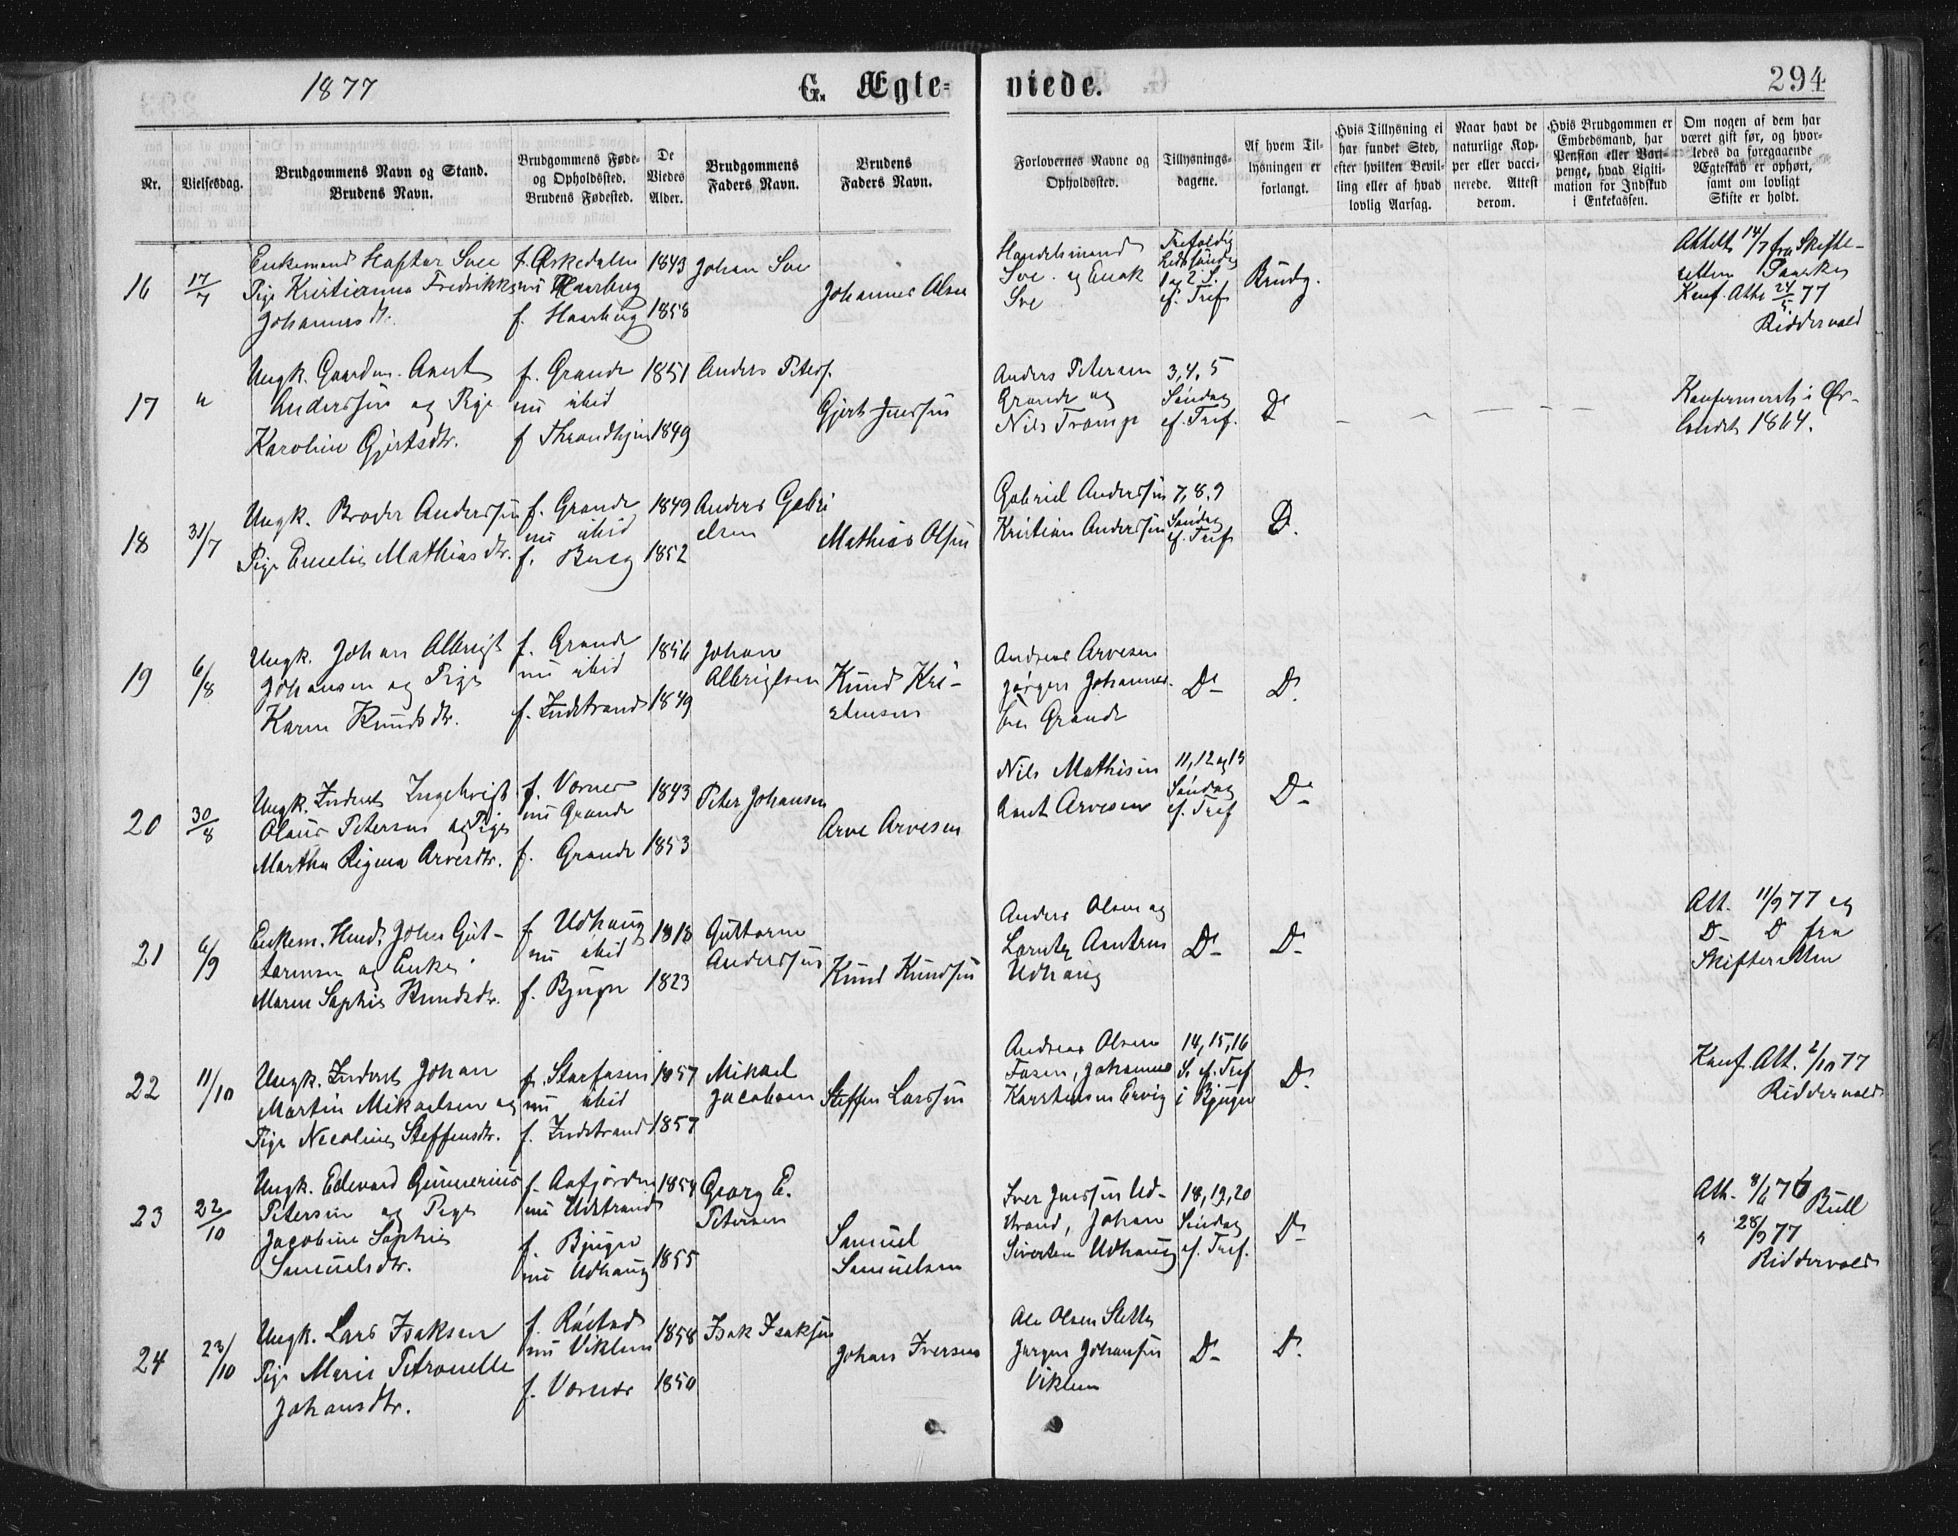 1877
G. Ægte-
viede.
294
Nr.
Vielsesdag.
Brudgommens Navn og Stand.
Brudens Navn.
Brudgommens Føde-
og Opholdssted.
Brudens Fødested.
De
Viedes
Alder.
Brudgommens
Faders Navn.
Brudens
Faders Navn.
Forlovernes Navne og
Opholdssted.
Tillysnings-
dagene.
Af hvem Til-
lysningen er
forlangt.
Hvis Tillysning ei
har fundet Sted,
efter hvilken Bevil-
ling eller af hvad
lovlig Aarsag.
Naar havt de
naturlige Kop-
per eller vacci-
nerede. Attest
derom.
Hvis Brudgommen er
Embedsmand, har
Pension eller Var-
penge, hvad Ligiti-
mation for Indskud
i Enkekassen.
Om nogen af dem har
været gift før, og hvor-
ledes da foregaaende
Ægteskab er ophørt,
samt om lovligt
Skifte er holdt.
16
17/7
Enkemand Haftor Sve
Pige Kristianna Fredrikke
Johannesdtr.
f. Ørkedalen
nu Haarberg
f. Haarberg
1843
1858
Johan Sve
Johannes Olsen
Handelsmand
Sve og Enok
Sve
Trefoldig
hedssøndag
1 og 2 S.
ef. Tref
Brudg.
Attest 14/7 fra Skifte-
retten
Konf. Att. 24/5 77
Riddervold
17
"
Ungk. Gaardm. Anert
Anderssen og Pige
Karoline Gjertsdtr.
f. Grande
nu ibid
f. Throndhjem
1851
1849
Anders Peters.
Gjert Jenssen
Anders Petersen
Grande og
Nils Tromp
3, 4, 5
Søndag
ef. Tref.
Do
Konfermeret i Ør-
landet 1864.
18
31/7
Ungk. Broder Anderssen
Pige Emelie Mathiasdtr.
f. Grande
nu ibid
f. Borg
1849
1852
Anders Gabri
elsen
Mathias Olsen
Gabriel Anderssen
Kristian Anderssen
7, 8, 9
Søndag
ef. Tref
Do.
19
6/8
Ungk. Johan Albrigt
Johansen og Pige
Karen Knudsdtr.
f. Grande
nu ibid
f. Indstrand
1856
1849
Johan
Albrigtsen
Knud Kri-
stensen
Andreas Arvesen
Jørgen Johannes-
sen Grande
Do
Do
20
30/8
Ungk. Inderst Ingebrigt
Olaus Petersen og Pige
Martha Regina Arvesdtr.
f. Vornes
nu Grande
f. Grande
1843
1853
Peter Johansen
Arve Arvesen
Nils Mathisen
Arnt Arvesen
11, 12 og 13
Søndag
ef. Tref
Do
21
6/9
Enkem. Husm. John Gut-
tormsen og Enke
Maren Sophie Knudsdtr.
f. Udhaug
nu ibid
f. Bjugn
1818
1823
Guttorm
Anderssen
Knud Knudsen
Anders Olsen og
Lorntz Arntsen
Udhaug
Do
Do
Att. 11/9 77 og
Do Do fra
Skifteretten
22
11/10
Ungk. Inderst Johan
Martin Mikaelsen og
Pige Nicoline Steffensdtr.
f. Storfosen
nu ibid
f. Indstrand
1857
1857
Mikael
Jacobsen
Steffen Larssen
Andreas Olsen
Fosen, Johannes
Karstensen Ervig
14, 15, 16
S. ef. Tref
i Bjugn
Do
Konf. Att. 2/10 77
Riddervold
23
22/10
Ungk. Edevard Gunnerius
Petersen og Pige
Jacobine Sophie
Samuelsdtr.
f. Aafjorden
nu Udstrand
f. Bjugn
nu Udhaug
1854
1855
Georg E.
Petersen
Samuel
Samuelsen
Iver Jenssen Ud-
strand, Johan
Sivertsen Udhaug
18, 19, 20
Søndag
ef. Tref.
Do
Att. 8/6 76 Bull
" 28/9 77
Riddervold
24
23/10
Ungk. Lars Isaksen
Pige Marie Petronelle
Johansdtr.
f. Røstad
nu Viklem
f. Vornes
1858
1850
Isak Isaksen
Johan Iversen
Ole Olsen Slette
Jørgen Johansen
Viklem
Do
Do